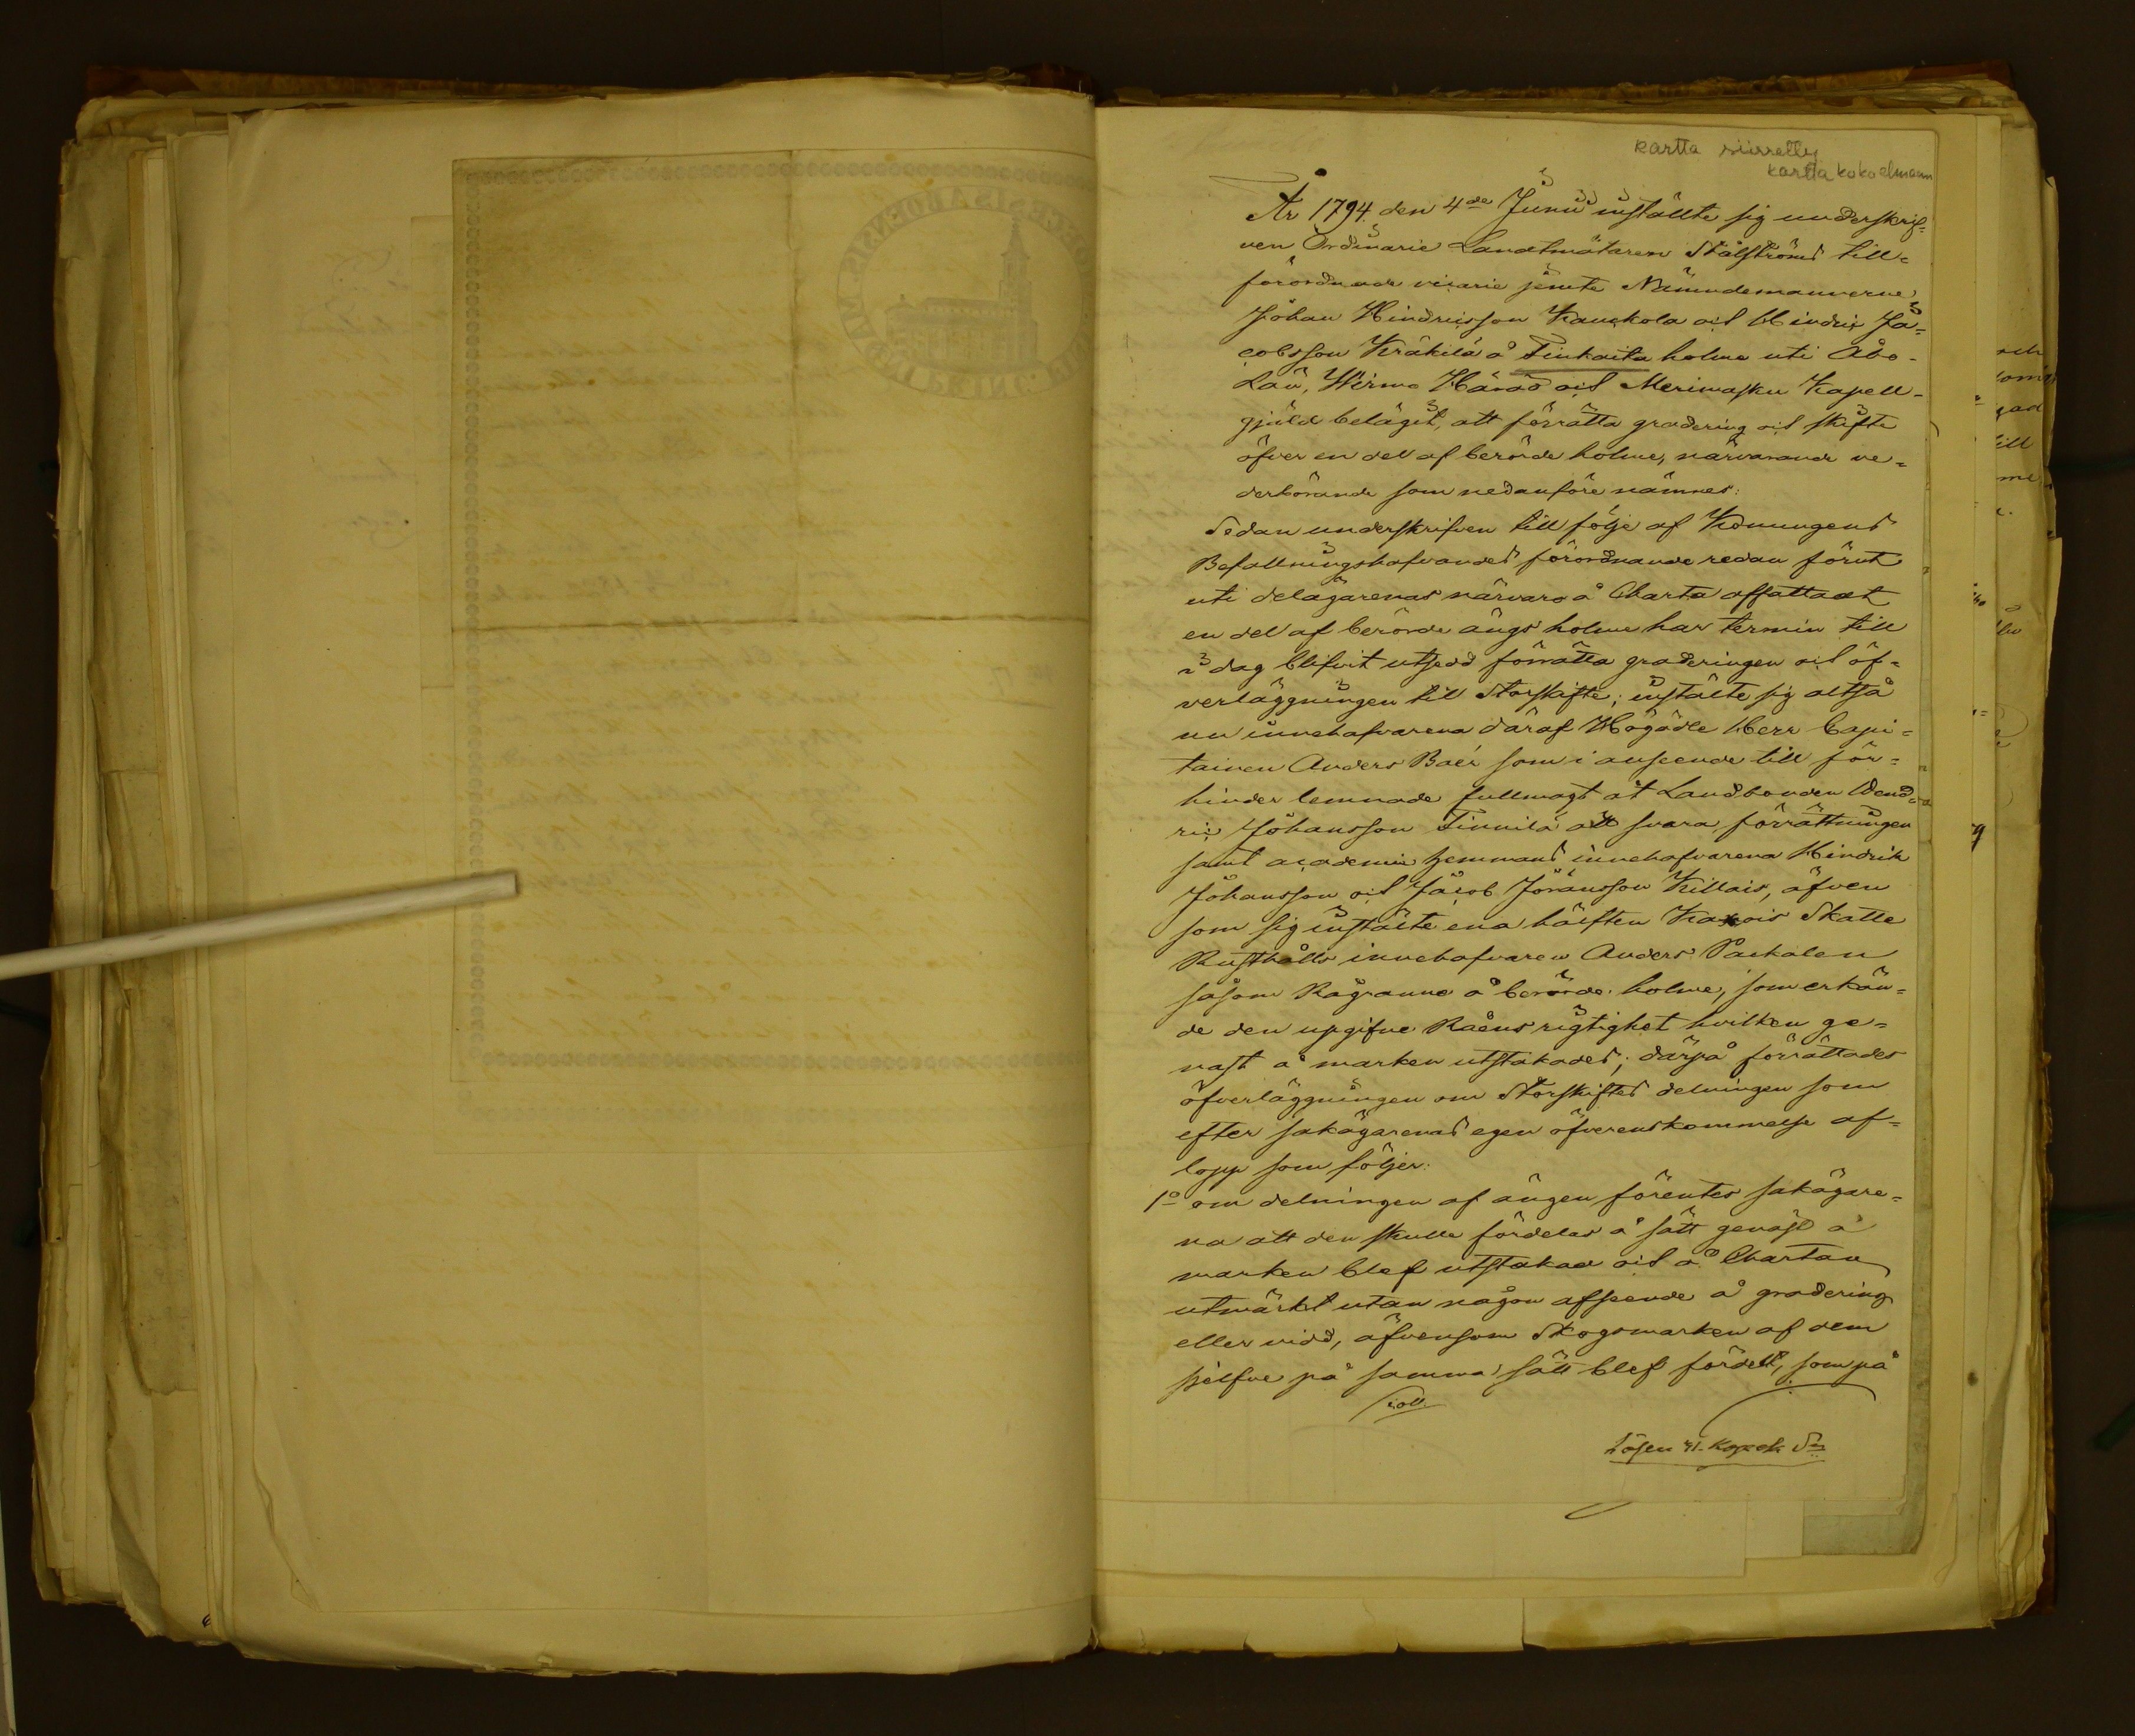 kartta siirretty
karttakokoelmaan
År 1794 den 4de Junii instälte sig underskrif=
ven Ordinarie Landtmätaren Stålströms till=
förordnade vicarie jemte Nämndemannerne
Johan Hindricsson Kauckola och Hindric Ja=
cobsson Kräkilä å Tinkaita holme uti Åbo
Län, Wirmo Härad och Merimasku Kapell-
gjäld beläget, att förrätta gradering och skifte
öfver en del af berörde holme, närvarande ve=
derbörande som nedanföre nämnes:
Sedan underskrifven till följe af Konungens
Befallningshafvandes förordnande redan förut
uti delägarenas närvaro å Charta affattadt
en del af berörde ängs holme har termin till
i dag blifvit utsedd förrätta graderingen och öf=
verläggningen til Storskifte; instälte sig altså
nu innehafvarena däraf Högädle Herr Capi=
tainen Anders Baér som i anseende till för=
hinder lemnade fullmagt åt Landbonden Hend=
ric Johansson Finnilä att svara förrättningen
samt academie hemmans innehafvarena Hindrik
Johansson och Jacob Jöransson Killais, äfven
som sig instälte ena hälften Karois Skatte
Rusthålls innehafvaren Anders
såsom Rågranne å berörde holme, som erkän=
de den upgifne Råens rigtighet hvilken ge=
nast å marken utstakades; därpå förrättades
öfverläggningen om Storskiftes delningen som
efter sakägarenas egen öfverenskommelse af=
lopp som följer:
1o om delningen af ängen förentes sakägare=
na att den skulle fördelas å sätt genast å
marken blef utstakad och å Chartan
utmärkt utan någon afseende å gradering
eller vidd, äfvensom Skogsmarken af dem
sjelfve på samma sätt blef fördelt, som på
Coll.